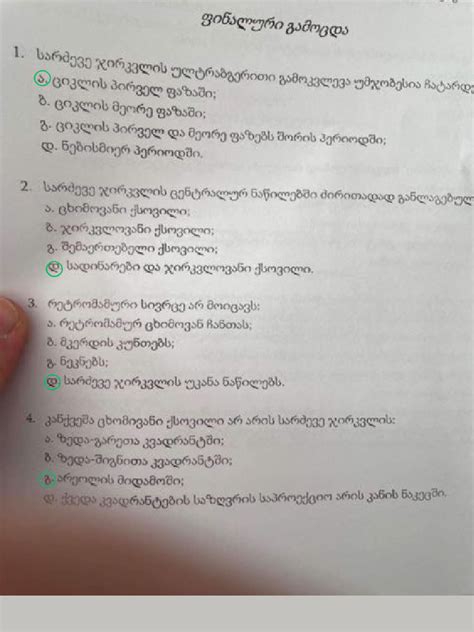 ფინალური გამოცდა
1. სარძევე ჯირკვლის ულტრაბგერითი გამოკვლევა უმჯობესია ჩატარდე
ა. ციკლის პირველ ფაზაში;
ბ. ციკლის მეორე ფაზაში;
გ. ციკლის პირველ და მეორე ფაზებს შორის პერიოდში;
დ. ნებისმიერ პერიოდში.
2. სარძევე ჯირკვლის ცენტრალურ ნაწილებში ძირითადად განლაგებულ
ა. ცხიმოვანი ქსოვილი;
ბ. ჯირკვლოვანი ქსოვილი;
გ. შემაერთებელი ქსოვილი;
დ. სადინარები და ჯირკვლოვანი ქსოვილი.
3. რეტრომამური სივრცე არ მოიცავს:
ა. რეტრომამურ ცხიმოვან ჩანთას;
ბ. მკერდის კუნთებს;
გ. ნეკნებს;
დ. სარძევე ჯირკვლის უკანა ნაწილებს.
4. კანქვეშა ცხომივანი ქსოვილი არ არის სარძევე ჯირკვლის:
ა. ზედა-გარეთა კვადრანტში;
ბ. ზედა-შიგნითა კვადრანტში;
გ. არეოლის მიდამოში;
დ. ქვედა კვადრანტების საზღვრის საპროექციო არის კანის ნაკეცში.